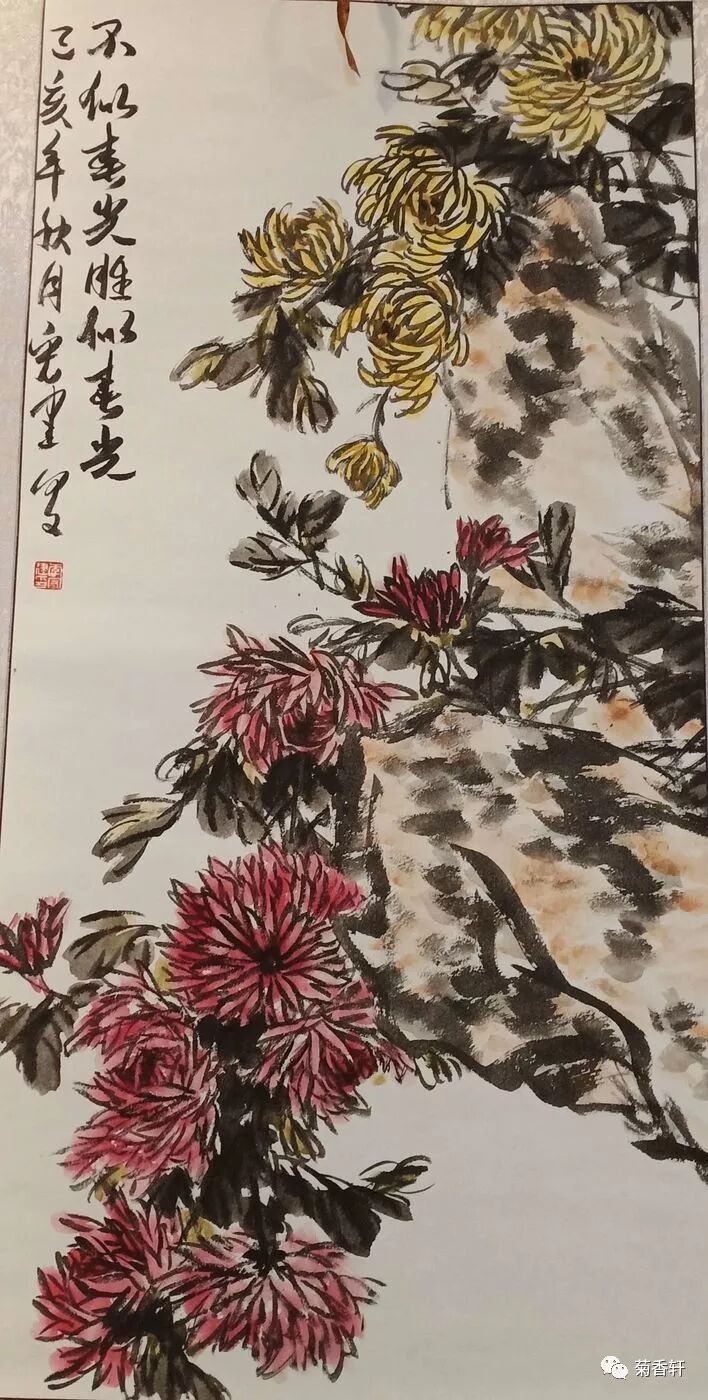 不似春光胜似春光
己亥年秋月宪建写
菊香轩